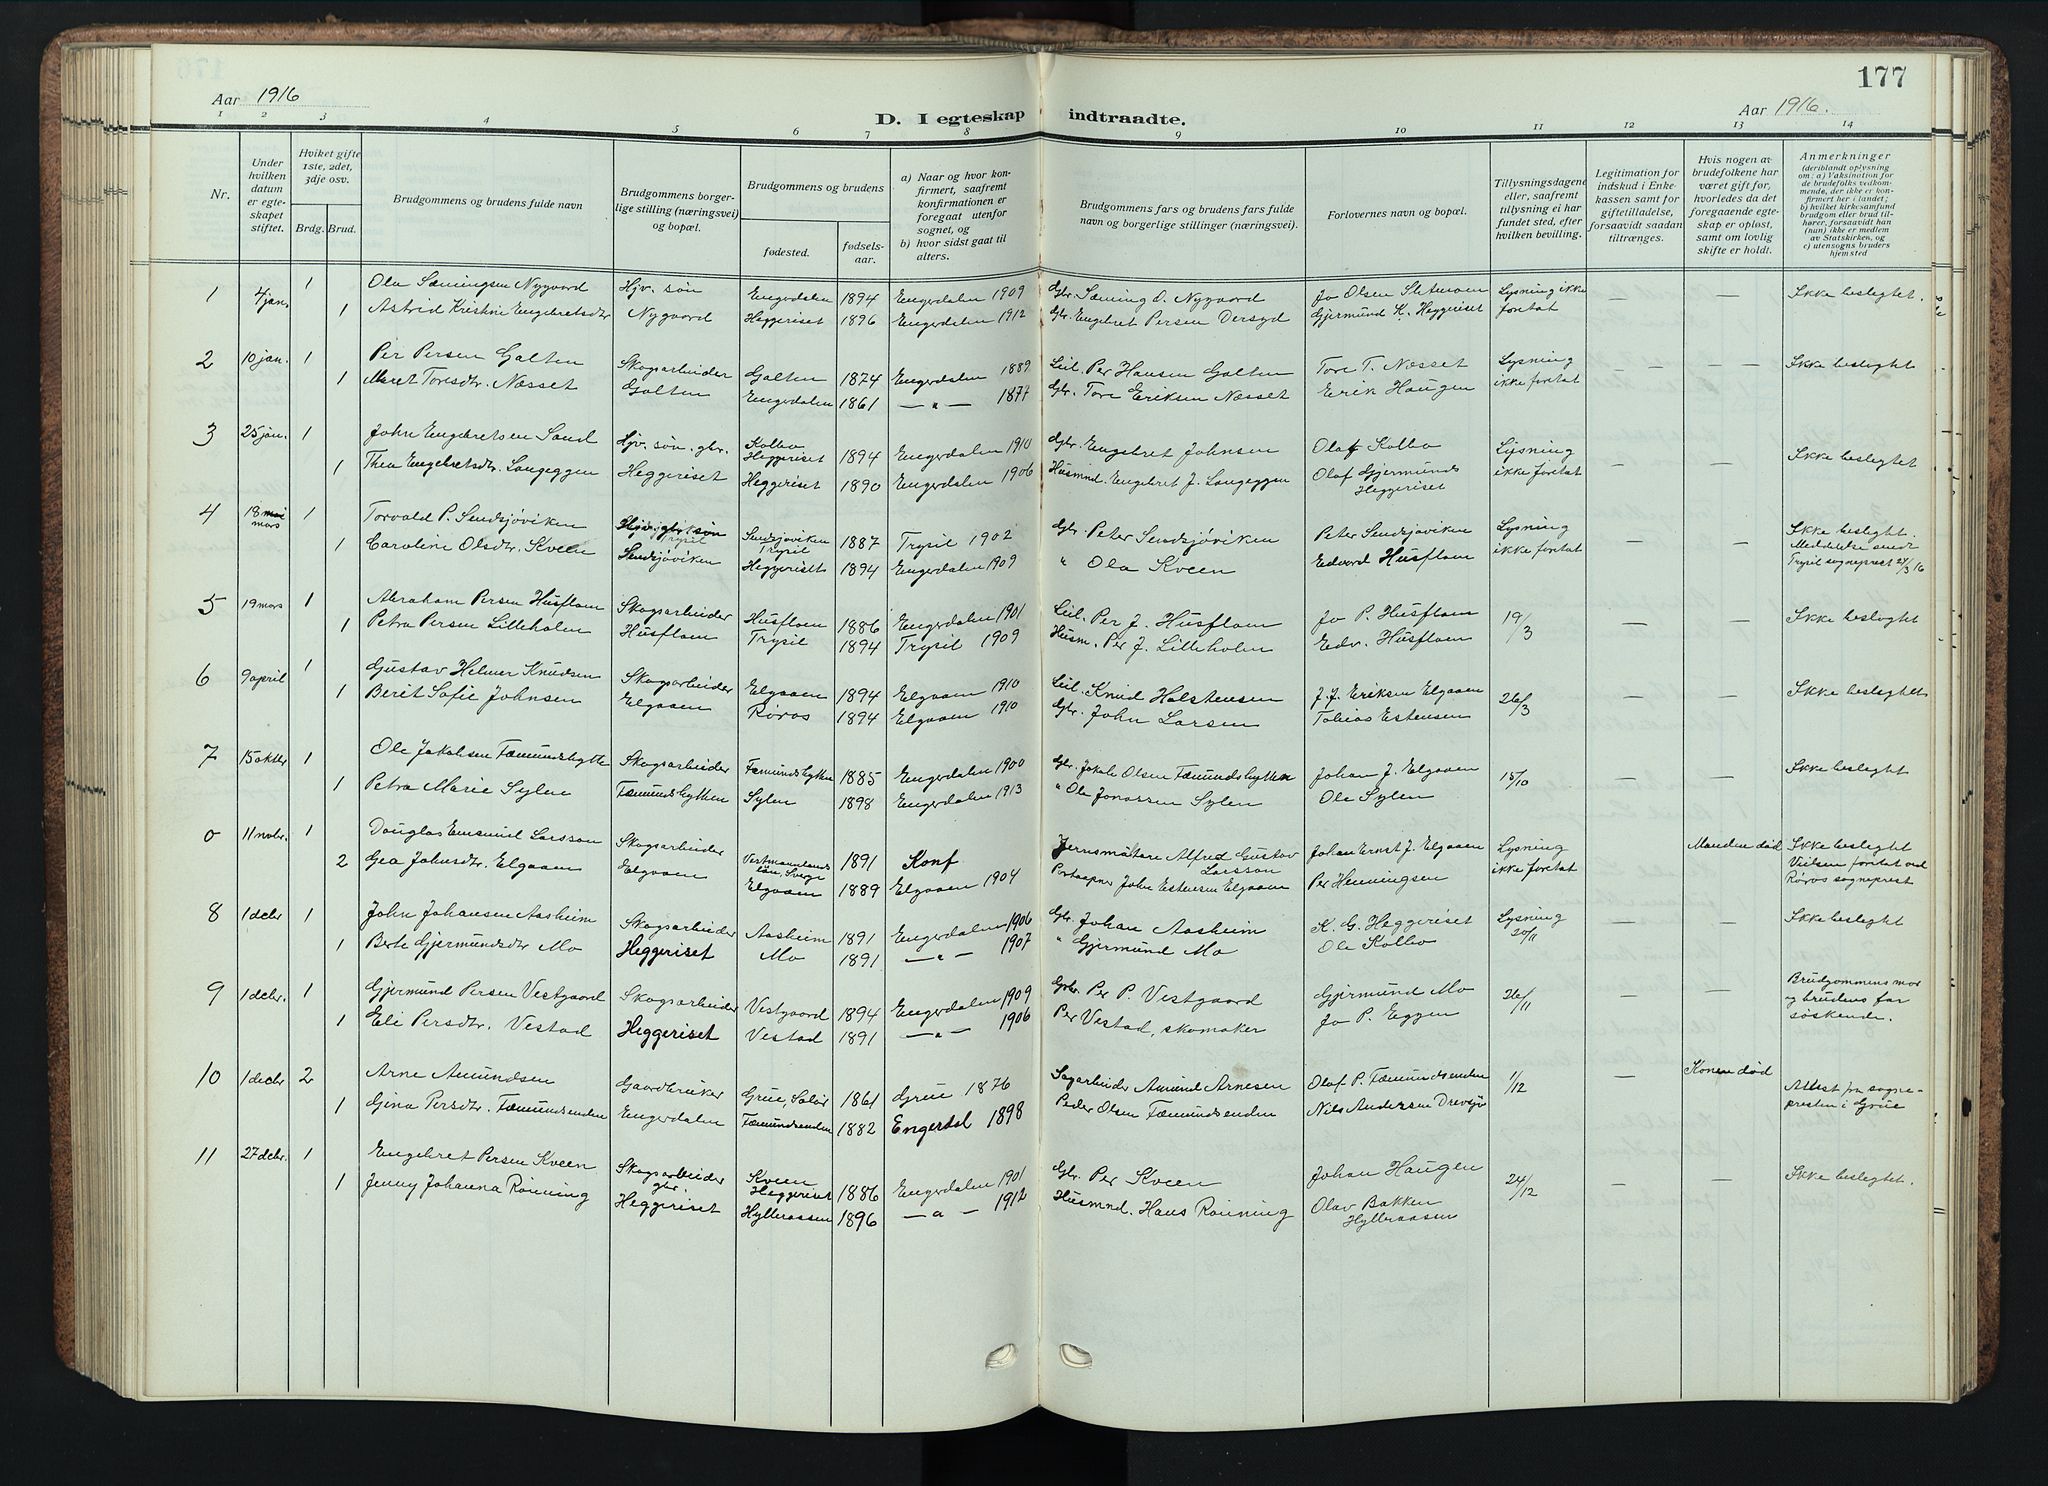 177
Aar 1916
Aar 1916.
D. I egteskap indtraadte.
1 2 3 4 5 6 7 8 9 10 11 12 13 14
Nr.
Under hvilken datum er egteskapet stiftet.
Hviket gifte 1ste, 2det, 3dje osv.
Brdg. Brud.
Brudgommens og brudens fulde navn
Brudgommens borgerlige stilling (næringsvei) og bopæl.
Brudgommens og brudens
fødested.
fødselsaar.
a) Naar og hvor konfirmert, saafremt konfirmationen er foregaat utenfor sognet, og
b) hvor sidst gaat til alters.
Brudgommens fars og brudens fars fulde navn og borgerlige stillinger (næringsvei).
Forlovernes navn og bopæl.
Tillysningsdagene eller, saafremt tillysning ei har fundet sted, efter hvilken bevilling.
Legitimation for indskud i Enkekassen samt for giftetilladelse, forsaavidt saadan tiltrænges.
Hvis nogen av brudefolkene har været gift før, hvorledes da det foregaaende egteskap er opløst, samt om lovlig skifte er holdt.
Anmerkninger (deriblandt oplysning om: a) Vaksination for de brudefolks vedkommende, der ikke er konfirmert her i landet; b) hvilket kirkesamfund brudgom eller brud tilhører, forsaavidt han (hun) ikke er medlem av Statskirken, og c) utensogns bruders hjemsted
1 4 jan. 1 Ola Sæmingsen Nygaard Hjv. søn Engerdalen 1894 Engerdalen 1909 Gbr. Sæming O. Nygaard Jo Olsen Lysning ikke — — Ikke beslegtet.
1 Astrid Kristine Engebretsdtr Nygaard Heggeriset 1896 Engerdalen 1912 Gbr. Engebret Persen Dersyd Gjermund K. Heggeriset foretat
2 10 jan. 1 Per Persen Galten Skogsarbeider Galten 1874 Engerdalen 1889 Leil. Per Hansen Galten Tore T. Næsset Lysning — — Ikke beslegtet
1 Maret Toresdtr. Næsset Galten Engerdalen 1861 — " — 1877 Gbr. Tore Eriksen Næsset Erik Haugen ikke foretat
3 25 jan. 1 John Engebretsen Sand Hjv. søn, gbr. Kolbo Heggeriset 1894 Engerdalen 1910 Gbr. Engebret Johnsen Olaf Kolbo Lysning — — Ikke beslegtet
1 Thea Engebretsdtr. Langeggen Heggeriset Heggeriset 1890 Engerdalen 1906 Husmnd. Engebret J. Langeggen Olaf Gjermunds Heggeriset ikke foretat
4 18 mars 1 Torvald P. Sendsjøviken Hjv. gbr søn Trysil Sendsjøviken Trysil 1887 Trysil 1902 Gbr. Peter Sendsjøviken Peter Sendsjøviken Lysning — — Ikke beslegtet. Meddelelse sendt Trysil sogneprest 21/3 16
1 Caroline Olsdtr. Kveen Sendsjøviken Heggeriset 1894 Engerdalen 1909 " Ola Kveen Edvard Husfloen ikke foretat
5 19 mars 1 Abraham Persen Husfloen Skogsarbeider Husfloen 1886 Engerdalen 1901 Leil. Per J. Husfloen Jo P. Husfloen 19/3 — — Ikke beslegtet
1 Petra Persen Lilleholen Husfloen Trysil 1894 Trysil 1909 Husm. Per J. Lilleholen Edv. Husfloen
6 9 april 1 Gustav Helmer Knudsen Skogsarbeider Elgaaen 1894 Elgaaen 1910 Leil. Knud Holstensen J. J. Eriksen Elgaaen 26/3 — — Ikke beslegtet
1 Berit Sofie Johnsen Elgaaen Røros 1894 Elgaaen 1910 Gbr. John Larsen Tobias Estensen
7 15 oktbr 1 Ole Jakobsen Fæmundshytte Skogsarbeider Fæmundshytten 1885 Engerdalen 1900 Gbr. Jakob Olsen Fæmundshytten Johan J. Elgaaen 15/10 — — Ikke beslegtet
1 Petra Marie Sylen Fæmundshytten Sylen 1898 Engerdalen 1913 " Ole Jonassen Sylen Ole Sylen
0 11 novbr. 1 Douglas Emanuel Larsson Skogsarbeider Vestmannlands län, Sverge 1891 Konf Jernsmältare Alfred Gustav Larsson Johan Ernst J. Elgaaen Lysning Manden død Ikke beslegtet Vielsen foretat ved Røros sogneprest
2 Gea Johnsdtr. Elgaaen Elgaaen Elgaaen 1889 Elgaaen 1904 Postaapner John Estensen Elgaaen Per Henningsen ikke foretat
8 1 decbr 1 John Johansen Aasheim Skogsarbeider Aasheim 1891 Engerdalen 1906 Gbr. Johan Aasheim K. G. Heggeriset Lysning 20/11 — — Ikke beslegtet
1 Berte Gjermundsdtr Mo Heggeriset Mo 1891 — " — 1907 " Gjermund Mo Ole Kolbo
9 1 decbr. 1 Gjermund Persen Vestgaard Skogsarbeider Vestgaard 1894 Engerdalen 1909 Gbr. Per P. Vestgaard Gjermund Mo 26/11 — — Brudgommens mor og brudens far søskende.
1 Eli Persdtr. Vestad Heggeriset Vestad 1891 — " — 1906 Per Vestad, skomaker Jo P. Eggen
10 1 decbr 2 Arne Amundsen Gaardbruker Grue, Solør 1861 Grue 1876 Sagarbeider Amund Arnesen Olaf P. Fæmundsenden 1/12 — Konen død Attest fra sognepresten i Grue
1 Gina Persdtr. Fæmundsenden Engerdalen Fæmundsenden 1882 Engerdal 1898 Peder Olsen Fæmundsenden Nils Andersen Drevsjø
11 27 decbr. 1 Engebret Persen Kveen Skogsarbeider gbr. Kveen Heggeriset 1886 Engerdalen 1901 Gbr. Per Kveen Johan Haugen 24/12 — — Ikke beslegtet.
1 Jenny Johanna Rønning Heggeriset Hylleraasen 1896 — " — 1912 Husmnd. Hans Rønning Olav Bakken Hylleraasen